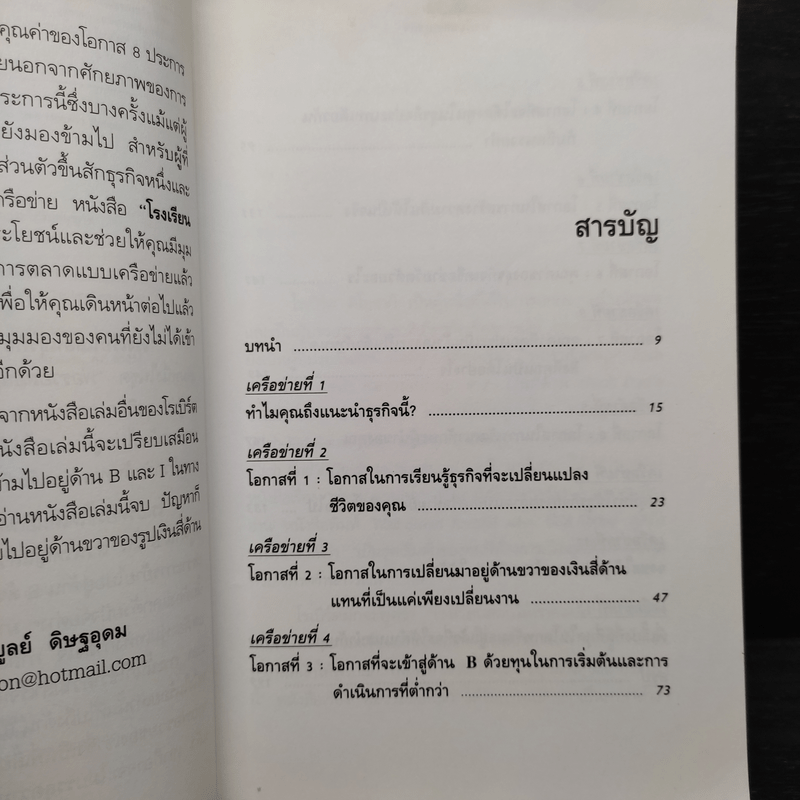 คุณค่าของโอกาส 8 ประการ
นอกจากศักยภาพของการ
ระการนี้ซึ่งบางครั้งแม้แต่ผู้
ยังมองข้ามไป สำหรับผู้ที่
ส่วนตัวขึ้นสักธุรกิจหนึ่งและ
ครือข่าย หนังสือ “โรงเรียน
ะโยชน์และช่วยให้คุณมีมุม
การตลาดแบบเครือข่ายแล้ว
พื่อให้คุณเดินหน้าต่อไปแล้ว
มุมมองของคนที่ยังไม่ได้เข้า
อีกด้วย
จากหนังสือเล่มอื่นของโรเบิร์ต
นังสือเล่มนี้จะเปรียบเสมือน
ข้ามไปอยู่ด้าน B และ I ในทาง
อ่านหนังสือเล่มนี้จบ ปัญหาก็
ยไปอยู่ด้านขวาของรูปเงินสี่ด้าน
บูลย์ ดิษฐอุดม
on@hotmail.com
สารบัญ
บทนำ ........................................ 9
เครือข่ายที่ 1
ทำไมคุณถึงแนะนำธุรกิจนี้? ........................................ 15
เครือข่ายที่ 2
โอกาสที่ 1 : โอกาสในการเรียนรู้ธุรกิจที่จะเปลี่ยนแปลง
ชีวิตของคุณ ........................................ 23
เครือข่ายที่ 3
โอกาสที่ 2 : โอกาสในการเปลี่ยนมาอยู่ด้านขวาของเงินสี่ด้าน
แทนที่เป็นแค่เพียงเปลี่ยนงาน .................... 47
เครือข่ายที่ 4
โอกาสที่ 3 : โอกาสที่จะเข้าสู่ด้าน B ด้วยทุนในการเริ่มต้นและการ
ดำเนินการที่ต่ำกว่า ........................................ 73